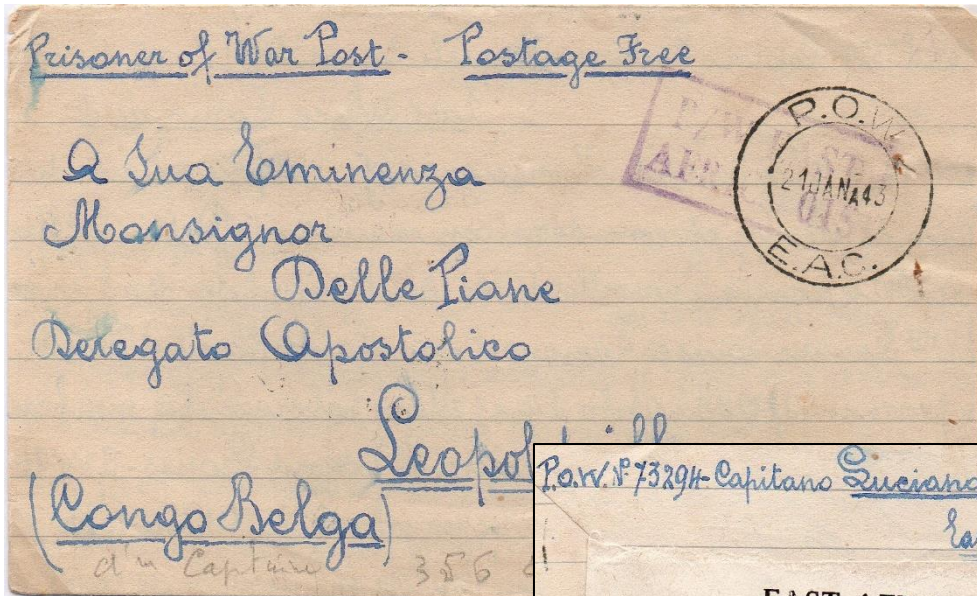 Prisoner of War Post - Postage Free
P/W EAST
AFR
015
P.O.W.
21 JAN A 43
E.A.C.
A Sua Eminenza
Monsignor
Delle Piane
Delegato Apostolico
Leopol
(Congo Belga)
d'un Capitaine 356
P.o.W. N° 73294 - Capitano Luciano
Ea
EAST AFR